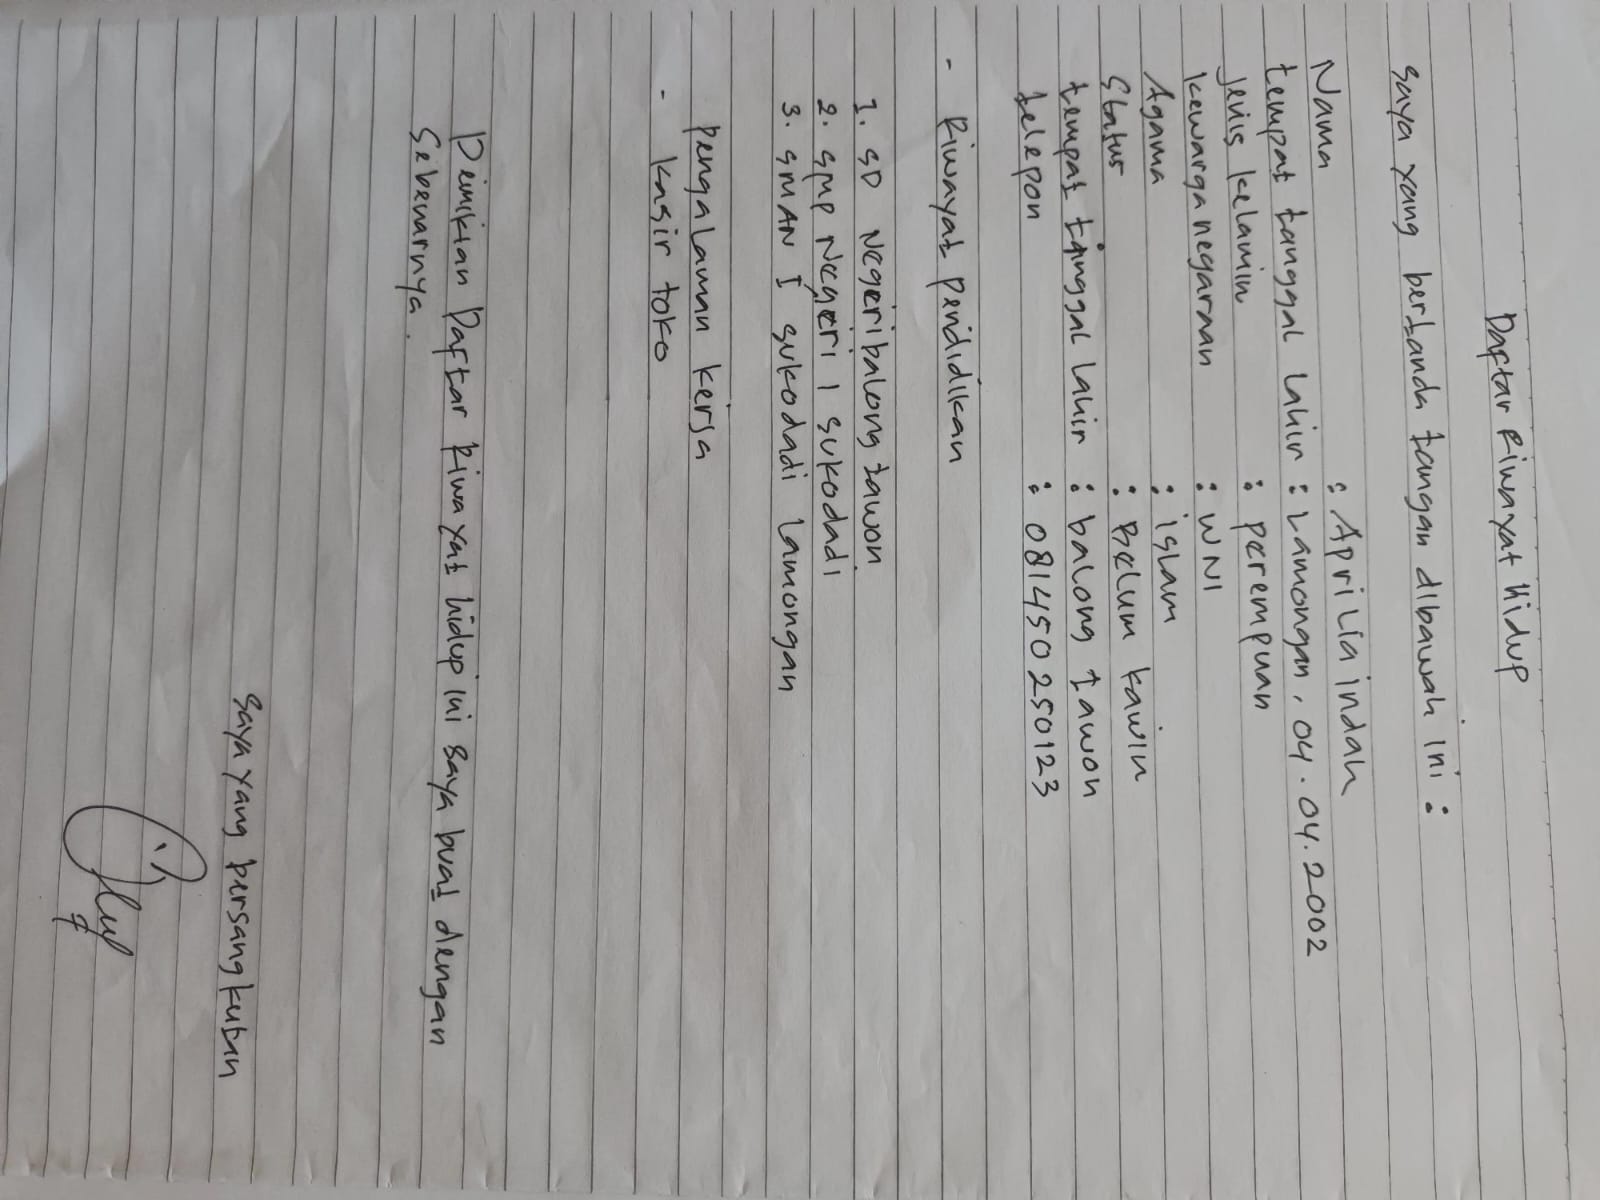 Daftar Riwayat Hidup
Saya yang bertanda tangan dibawah ini :
Nama : Aprilia indah
tempat tanggal lahir : Lamongan, 04.04.2002
jenis kelamin : perempuan
kewarganegaraan : WNI
Agama : islam
Status : Belum kawin
tempat tanggal lahir : balong tawon
telepon : 081450250123
- Riwayat pendidikan
1. SD Negeri balong tawon
2. SMP Negeri 1 sukodadi
3. SMAN I sukodadi Lamongan
pengalaman kerja
- kasir toko
Demikian Daftar Riwayat hidup ini saya buat dengan
Sebenarnya.
Saya yang bersangkutan